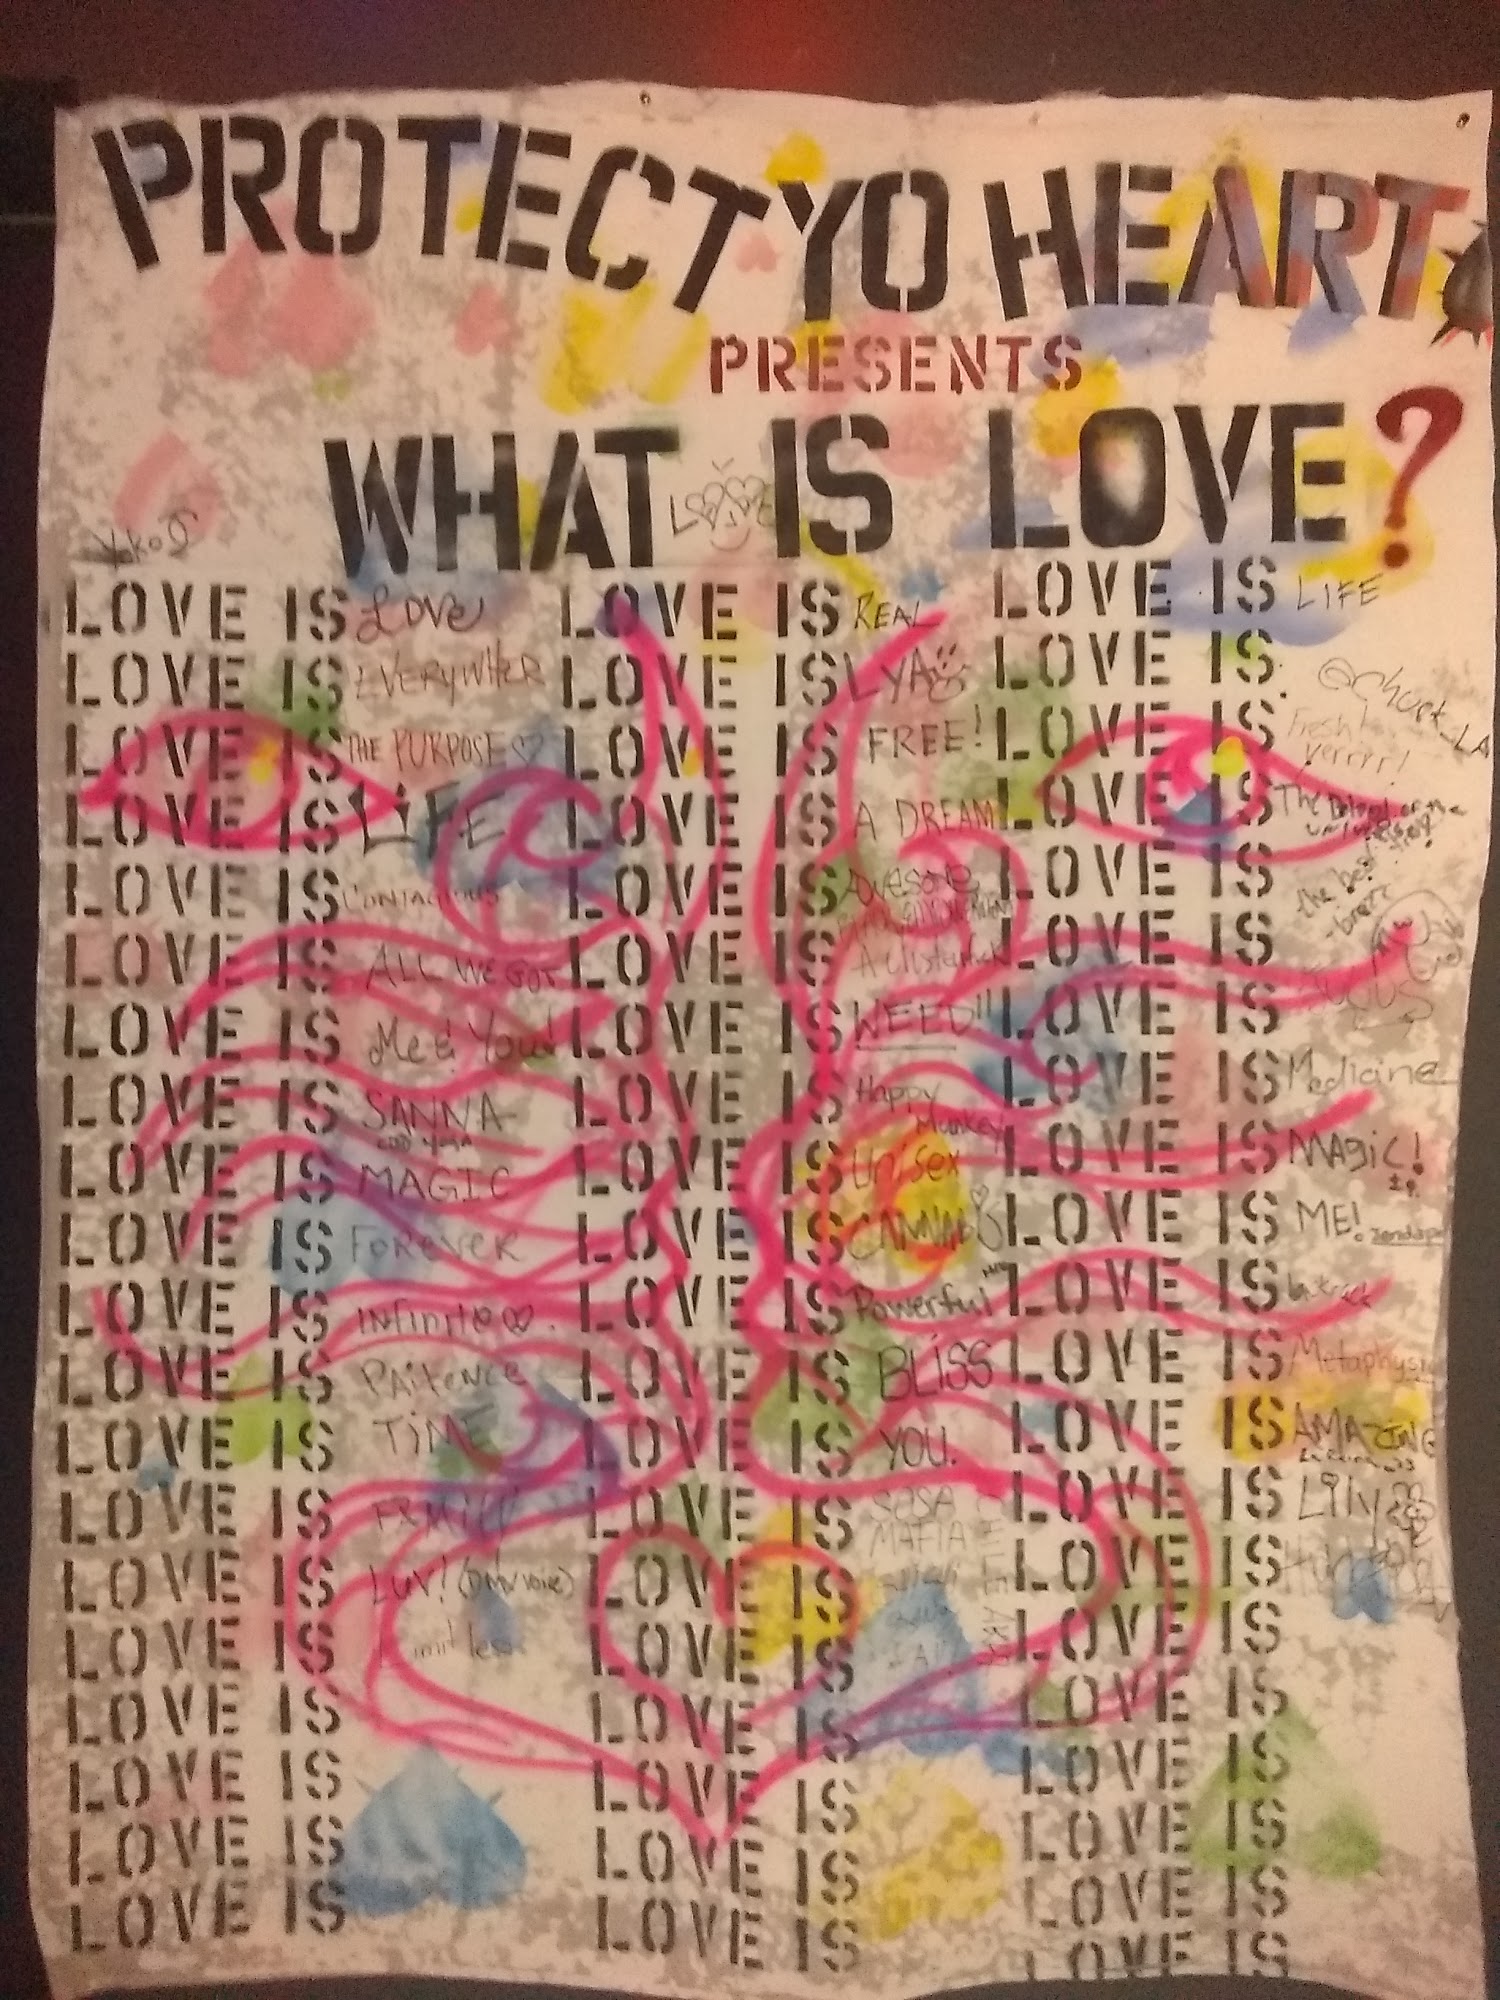 PROTECT YO HEART
PRESENTS
WHAT IS LOVE?
LOVE IS LOVE
LOVE IS EVERYWHER
LOVE IS THE PURPOSE
LOVE IS LiFE
LOVE IS CONTAGIOUS
LOVE IS ALL WE GOT
LOVE IS Me & You!
LOVE IS SANNA
LOVE IS MAGIC
LOVE IS FOREVER
LOVE IS INfinite
LOVE IS PAitence
LOVE IS TiME
LOVE IS FAMILY
LOVE IS LUV!
LOVE IS Limitless
LOVE IS
LOVE IS
LOVE IS
LOVE IS
LOVE IS REAL
LOVE IS LYA
LOVE IS FREE!
LOVE IS A DREAM
LOVE IS Awesome
LOVE IS A Clusterfuck
LOVE IS WEED!!
LOVE IS Happy Munkey
LOVE IS UniSex
LOVE IS CANNABIS
LOVE IS Powerful
LOVE IS BLiSS
LOVE IS YOU.
LOVE IS SOSA
MAFIA
LOVE IS
LOVE IS
LOVE IS
LOVE IS
LOVE IS
LOVE IS
LOVE IS LIFE
LOVE IS
@Chuck_LA
LOVE IS Fresh
LOVE IS The
LOVE IS the
LOVE IS
LOVE IS
LOVE IS Medicine
LOVE IS MAGiC!
LOVE IS ME!
LOVE IS
LOVE IS Metaphysic
LOVE IS AMAZING
LOVE IS Lily
LOVE IS
LOVE IS
LOVE IS
LOVE IS
LOVE IS
LOVE IS
LOVE IS